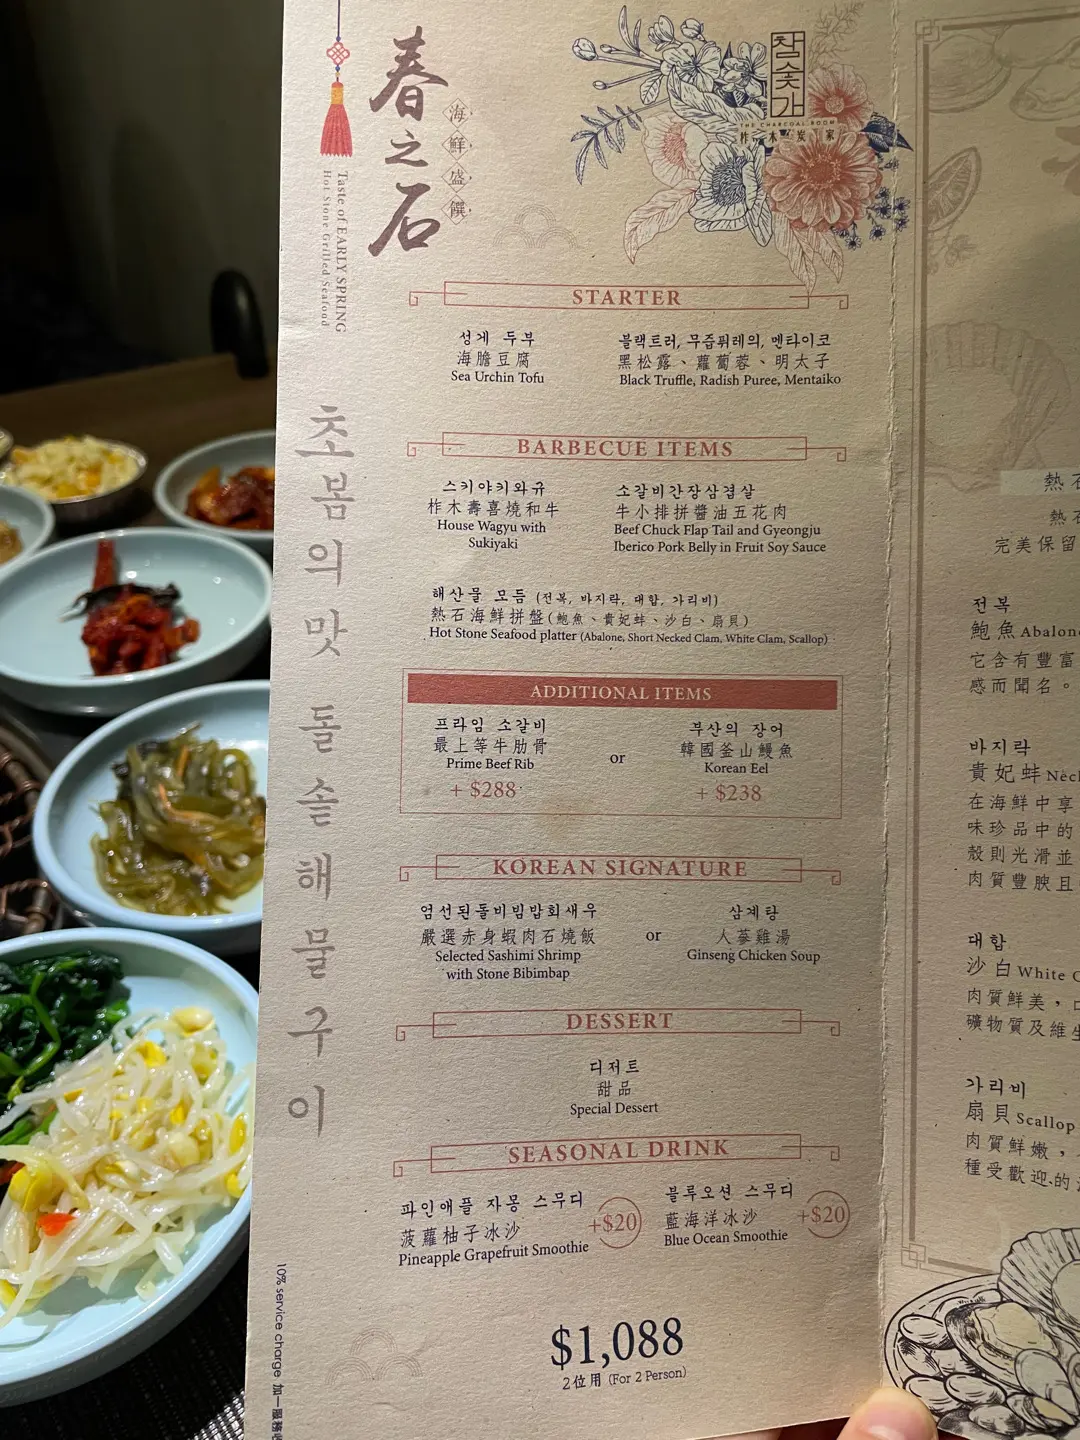 春之石
海鮮盛饌
Taste of EARLY SPRING
Hot Stone Grilled Seafood
참숯가
THE CHARCOAL ROOM
柞木炭家
초봄의맛 돌솥해물구이
STARTER
성게 두부
海膽豆腐
Sea Urchin Tofu
블랙트러, 무즙퓌레의, 멘타이코
黑松露、蘿蔔蓉、明太子
Black Truffle, Radish Puree, Mentaiko
BARBECUE ITEMS
스키야키와규
柞木壽喜燒和牛
House Wagyu with
Sukiyaki
소갈비간장삼겹살
牛小排拼醬油五花肉
Beef Chuck Flap Tail and Gyeongju
Iberico Pork Belly in Fruit Soy Sauce
해산물 모듬 (전복, 바지락, 대합, 가리비)
熱石海鮮拼盤(鮑魚、貴妃蚌、沙白、扇貝)
Hot Stone Seafood platter (Abalone, Short Necked Clam, White Clam, Scallop)
ADDITIONAL ITEMS
프라임 소갈비
最上等牛肋骨
Prime Beef Rib
+ $288
or
부산의 장어
韓國釜山鰻魚
Korean Eel
+ $238
KOREAN SIGNATURE
엄선된돌비빔밥회새우
嚴選赤身蝦肉石燒飯
Selected Sashimi Shrimp
with Stone Bibimbap
or
삼계탕
人蔘雞湯
Ginseng Chicken Soup
DESSERT
디저트
甜品
Special Dessert
SEASONAL DRINK
파인애플 자몽 스무디
菠蘿柚子冰沙
Pineapple Grapefruit Smoothie
+$20
블루오션 스무디
藍海洋冰沙
Blue Ocean Smoothie
+$20
$1,088
2位用 (For 2 Person)
10% service charge 加一服務
熱
熱石
完美保留
전복
鮑魚 Abalon
它含有豐富
感而聞名。
바지락
貴妃蚌 Neck
在海鮮中享
味珍品中的
殼則光滑並
肉質豐腴且
대합
沙白 White C
肉質鮮美，
礦物質及維生
가리비
扇貝 Scallop
肉質鮮嫩，
種受歡迎的